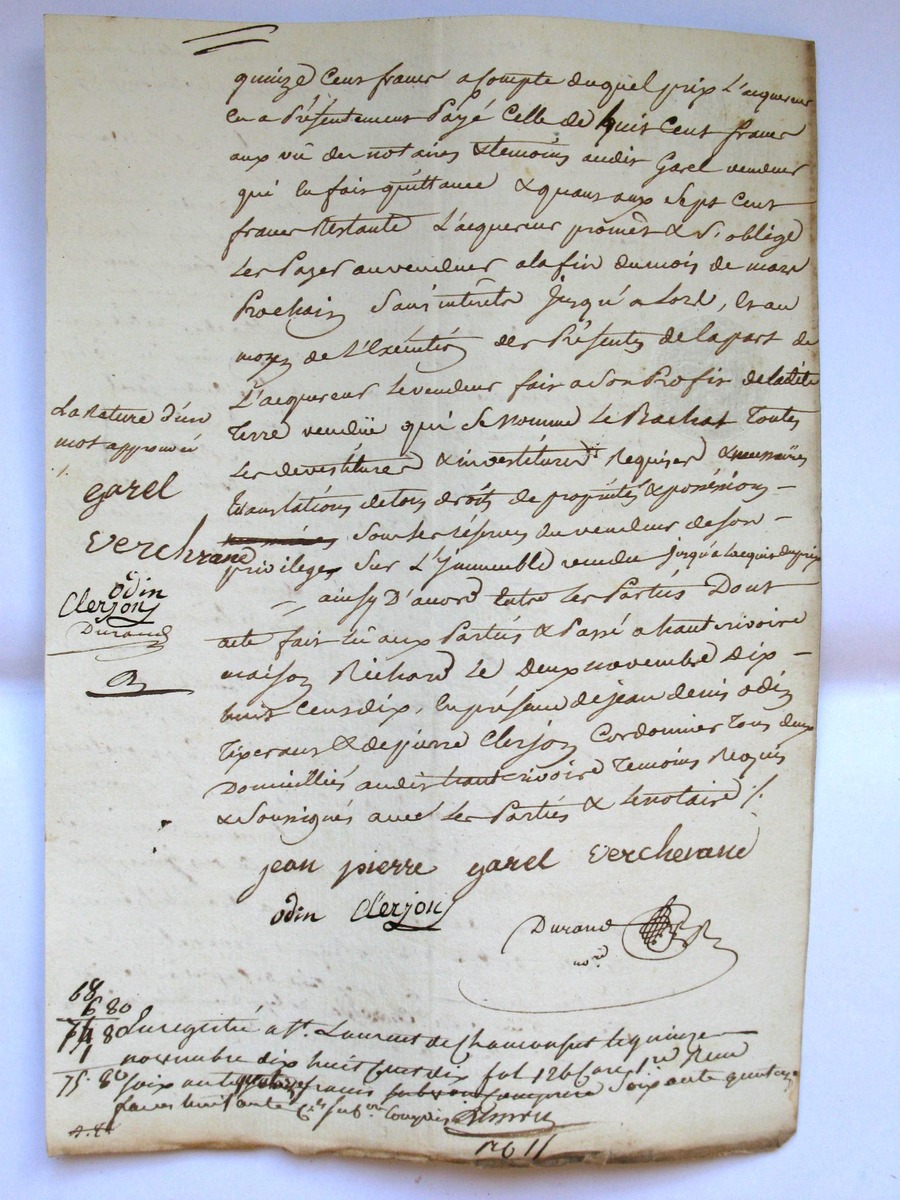 quinze Cent francs a Compte duquel prix L'acquereur
en a Présentement Payé Celle de huit Cent francs
aux vû des notaires & temoins audit Garel vendeur
qui en fait quittance & quant aux Sept Cent
francs Restante L'acquereur promet & S'oblige
Les Payer au vendeur a la fin du mois de mars
Prochain Sans interets Jusqu'a Lord, Et au
moyen de L'Execution des Présentes de la part de
L'acquereur Le vendeur fait a Son Profit de ladite
Terre vendüe qui Se Nomme Le Rachat Toutes
Les devestitures & investitures Requises & necessaires
translations de tous droits de propriétés & possessions
Sous les réserves du vendeur de Son
privilege Sur L'Immeuble vendu jusqu'a Lacquis du prix
ainsy D'accord Entre Les Partiés Dont
acte fait Lû aux Partiés & Passé a hautrivoire
maison Richard Le deux novembre Dix
huit Cent dix, En présence de jean denis odin
Tixerant & de pierre Clerjon Cordonnier Tous deux
Domiciliés audit hautrivoire Temoins Requis
& Soussignés avec Les Partiés & Le notaire /.
La Rature d'un
mot approuvée
garel
vercherand
odin
Clerjon
Durand
jean pierre garel vercherand
odin Clerjon
Durand
no.re
68
6 80
74 80
1
75. 80
Enregistré a St. Laurent de Chamousset le quinze
novembre dix huit Cent dix fol 126 Case 1re Reçu
Soixante quatorze francs Soixante quatorze
francs huitante Ces Sub.on Compris